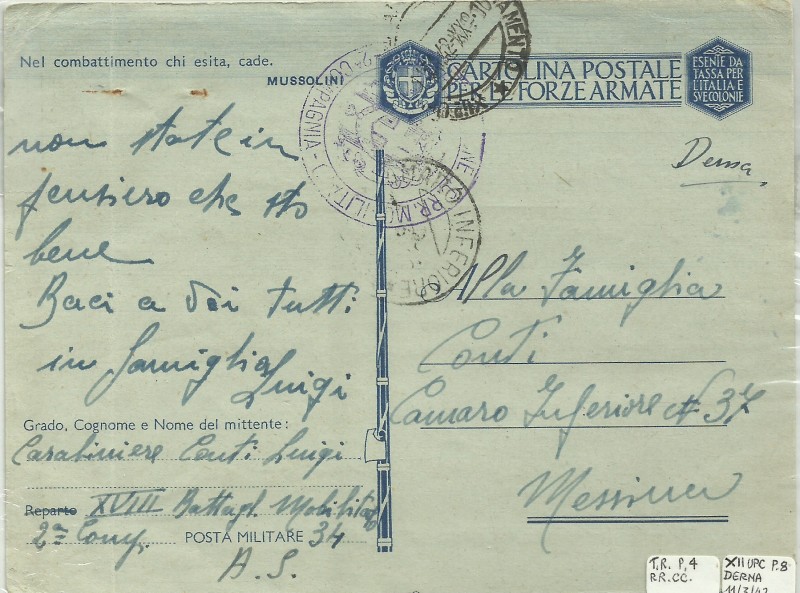 Nel combattimento chi esita, cade.
MUSSOLINI
CARTOLINA POSTALE
PER LE FORZE ARMATE
ESENTE DA
TASSA PER
L'ITALIA E
SVE COLONIE
Derna
non state in
pensiero che sto
bene
Baci a voi tutti
in famiglia
Luigi
Alla Famiglia
Conti
Camaro Inferiore N 37
Messina
Grado, Cognome e Nome del mittente:
Carabiniere Conti Luigi
Reparto XVIII Battagl. Mobilitato
2ª Comp. POSTA MILITARE 34
A.S.
COMPAGNIA
RR. MOBILITA
INFERIORE
T.R. P.4
RR.CC.
XII UPC P.8
DERNA
11/3/42